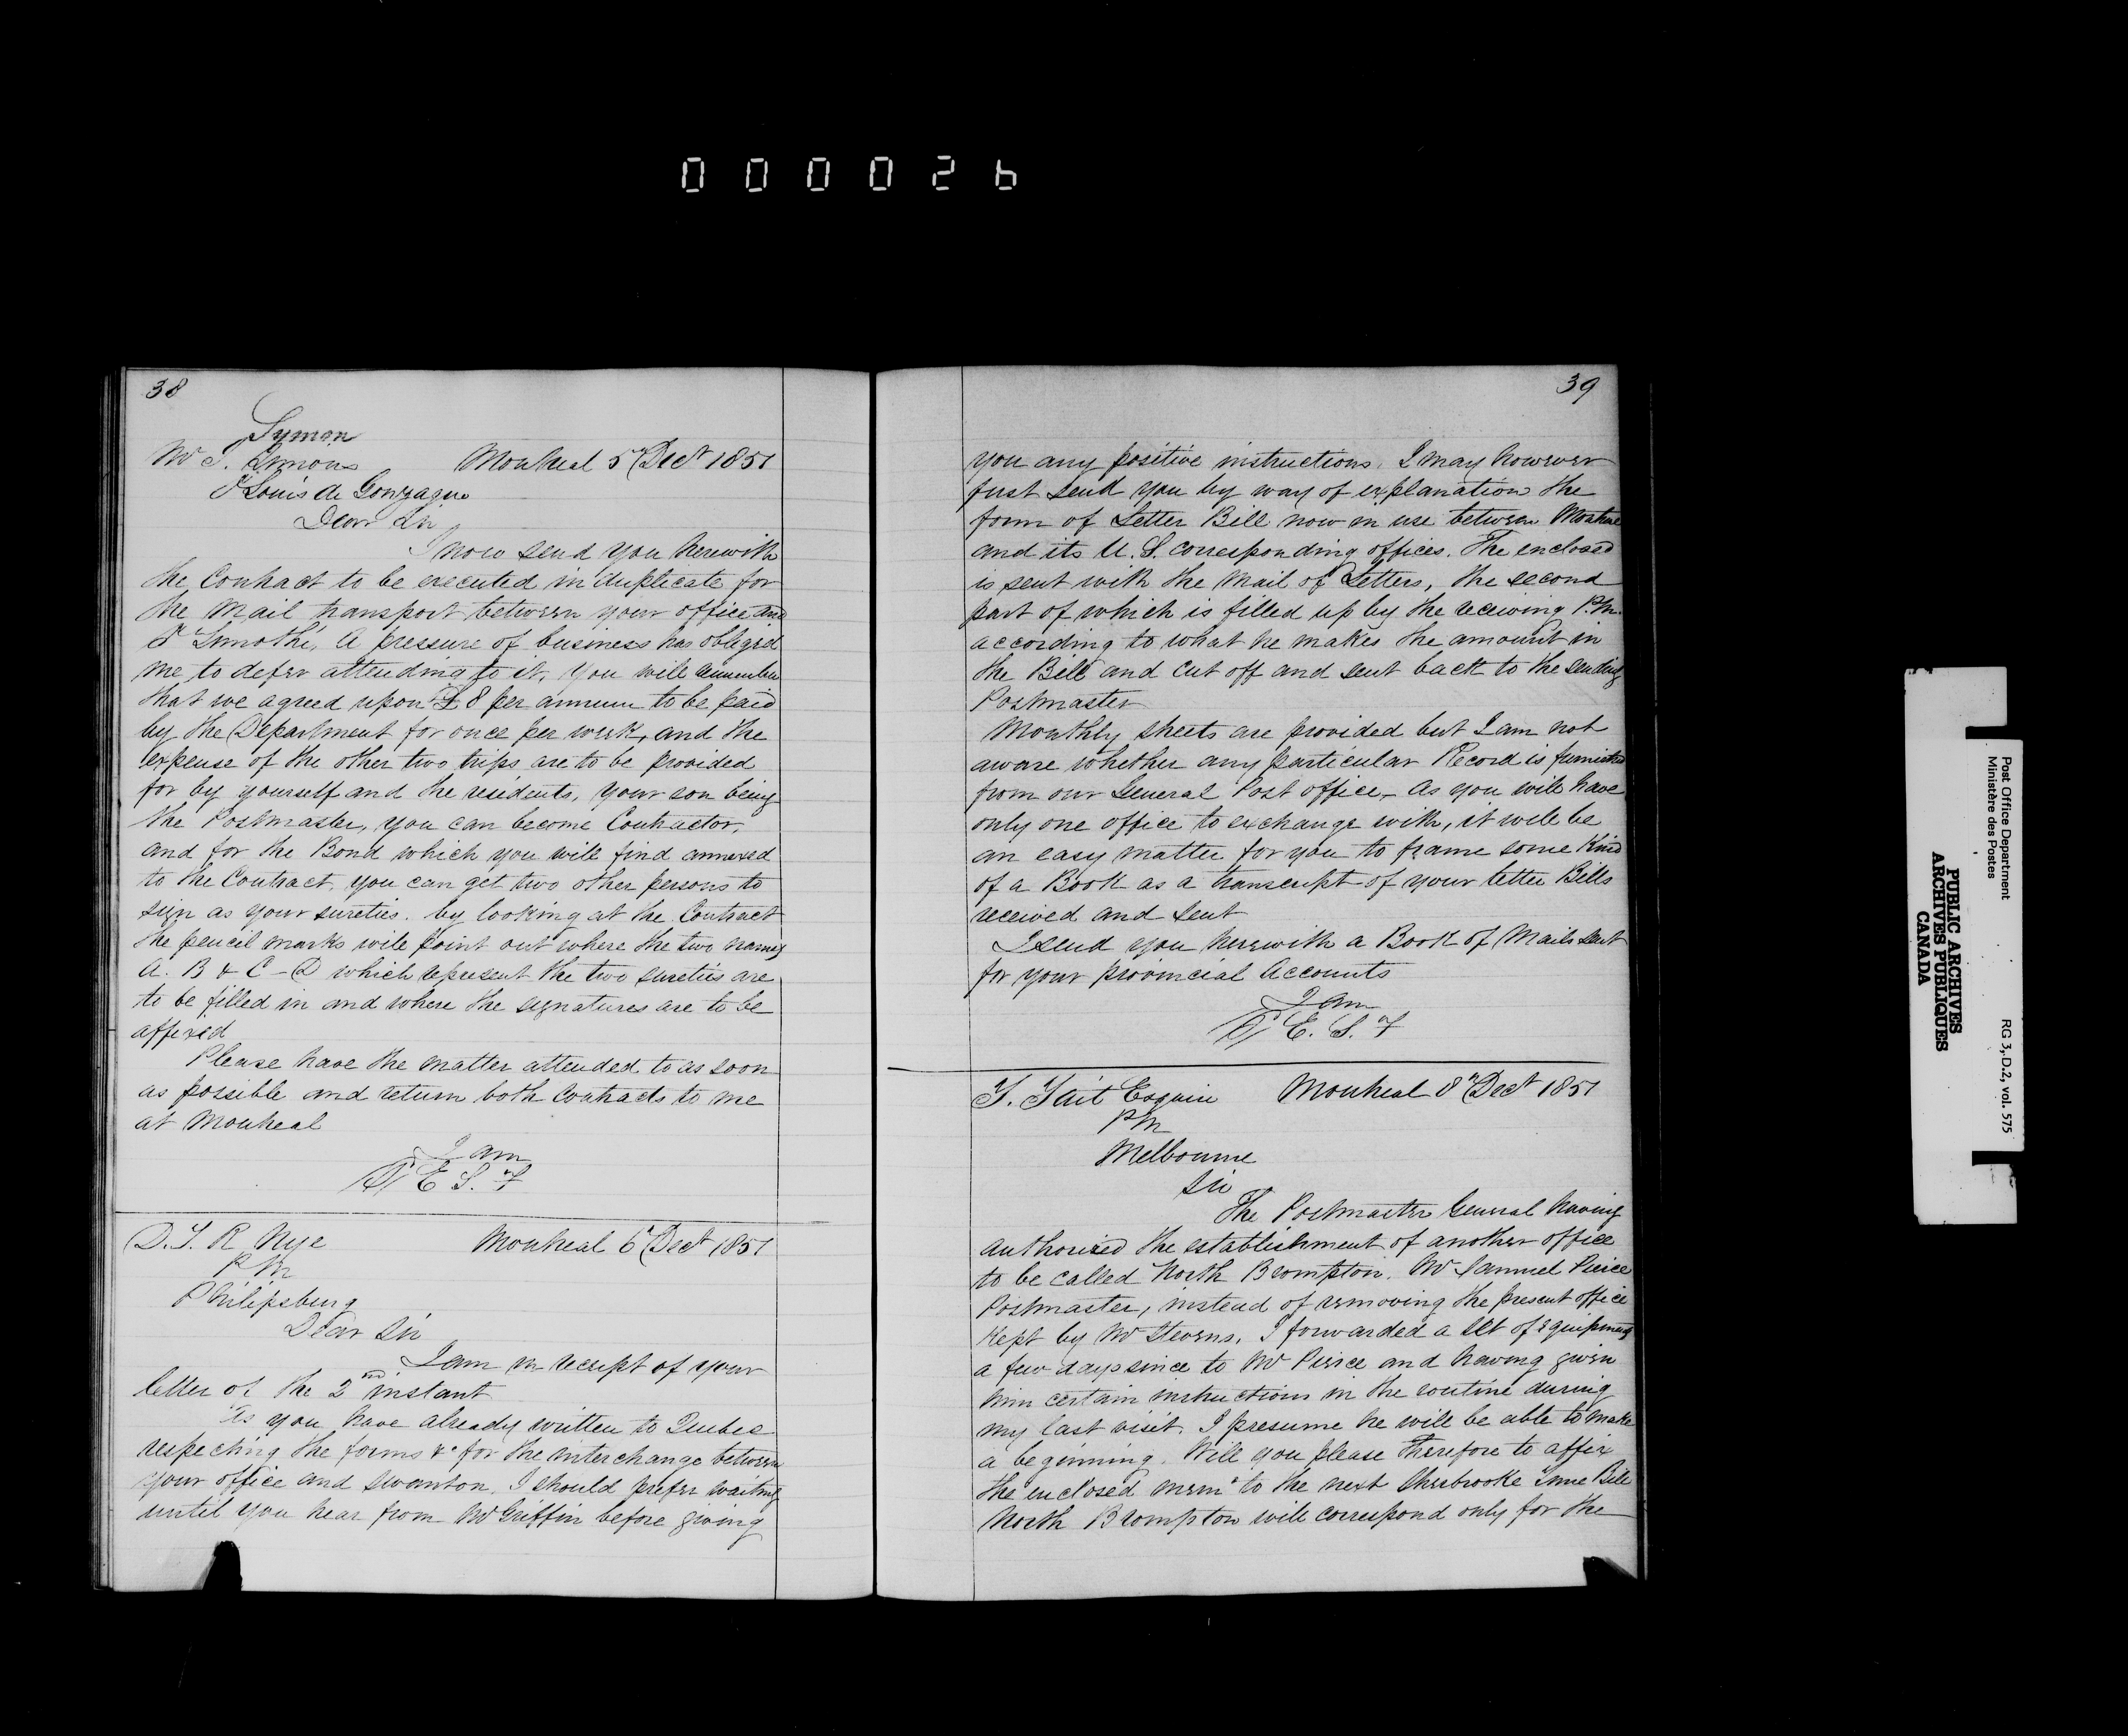 000026
38
Symon
Mr S. Simons Montreal 5th Decr 1851
St Louis de Gonzague
Dear Sir
I now send you herewith
the Contract to be executed in duplicate for
the Mail transport between your office and
St Timothé. A pressure of business has obliged
me to defer attending to it. You will remember
that we agreed upon £8 per annum to be paid
by the Department for once per week, and the
expense of the other two trips are to be provided
for by yourself and the residents. Your son being
the Postmaster, you can become Contractor,
and for the Bond which you will find annexed
to the Contract, you can get two other persons to
sign as your sureties. by looking at the Contract
the pencil marks will point out where the two names
A. B & C - D which represent the two sureties are
to be filled in and where the signatures are to be
affixed
Please have the matter attended to as soon
as possible and return both Contracts to me
at Montreal
I am
E. S. F
D. T. R Nye Montreal 6th Decr 1851
PM
Philipsburg
Dear Sir
I am in receipt of your
letter of the 2nd instant
As you have already written to Quebec
respecting the forms &c for the interchange between
your office and Swanton. I should prefer waiting
until you hear from Mr Griffin before giving
39
you any positive instructions. I may however
just send you by way of explanation the
form of Letter Bill now in use between Montreal
and its U. S. corresponding offices. The enclosed
is sent with the Mail of Letters, the second
part of which is filled up by the receiving P.M.
according to what he makes the amount in
the Bill and cut off and sent back to the sending
Postmaster
Monthly sheets are provided but I am not
aware whether any particular Record is furnished
from our General Post office. As you will have
only one office to exchange with, it will be
an easy matter for you to frame some kind
of a Book as a transcript of your letter Bills
received and sent
I send you herewith a Book of Mails sent
for your provincial Accounts
I am
E. S. F
T. Tait Esquire Montreal 8th Decr 1851
PM
Melbourne
Sir
The Postmaster General having
authorized the establishment of another office
to be called North Brompton. Mr Samuel Pierce
Postmaster, instead of removing the present office
kept by Mr Stevens. I forwarded a set of equipment
a few days since to Mr Pierce and having given
him certain instructions in the routine during
my last visit. I presume he will be able to make
a beginning. Will you please therefore to affix
the enclosed memo to the next Sherbrooke Time Bill
North Brompton will correspond only for the
Post Office Department
Ministère des Postes
RG 3, D.2, vol. 575
PUBLIC ARCHIVES
ARCHIVES PUBLIQUES
CANADA